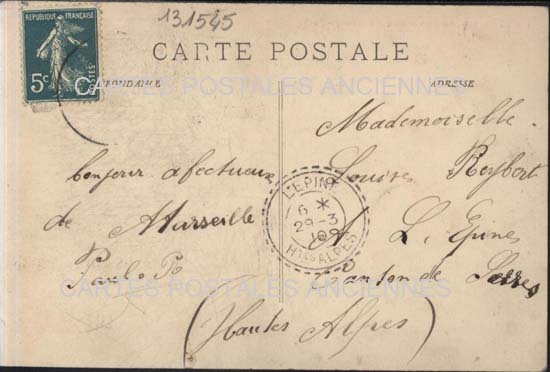 131545
REPUBLIQUE FRANÇAISE
5c POSTES
CARTE POSTALE
CORRESPONDANCE
ADRESSE
CARTES POSTALES ANCIENNES
bonjour afectueux
de Marseille
Paul
Mademoiselle
Louise Reybert
A L'Epine
canton de Serres
(Hautes Alpes)
L'EPINE
6 *
29-3
09
HTES ALPES
CARTES POSTALES ANCIENNES